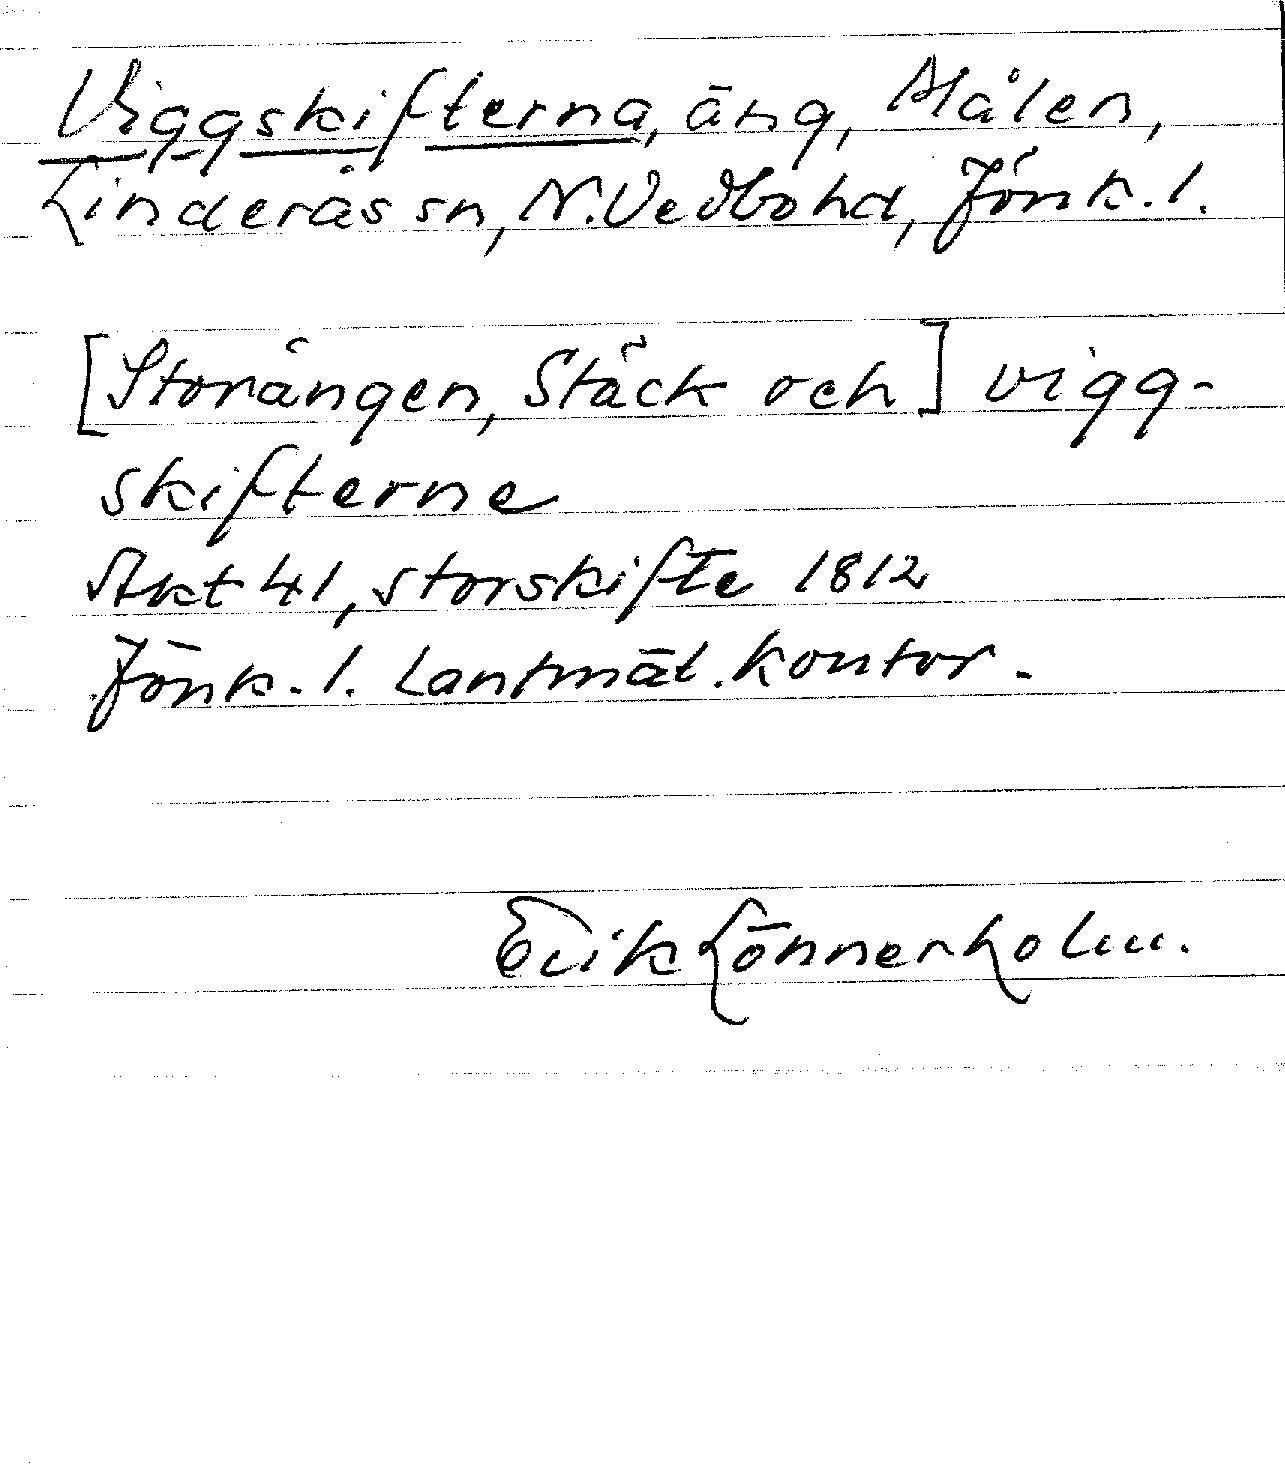 Viggskifterna, äng, Målen,
Linderås sn, N. Vedbo hd, Jönk. l.
[Storängen, Stäck och] vigg-
skifterne
Akt 41, storskifte 1812
Jönk. l. Lantmät. kontor.
Erik Lönnerholm.